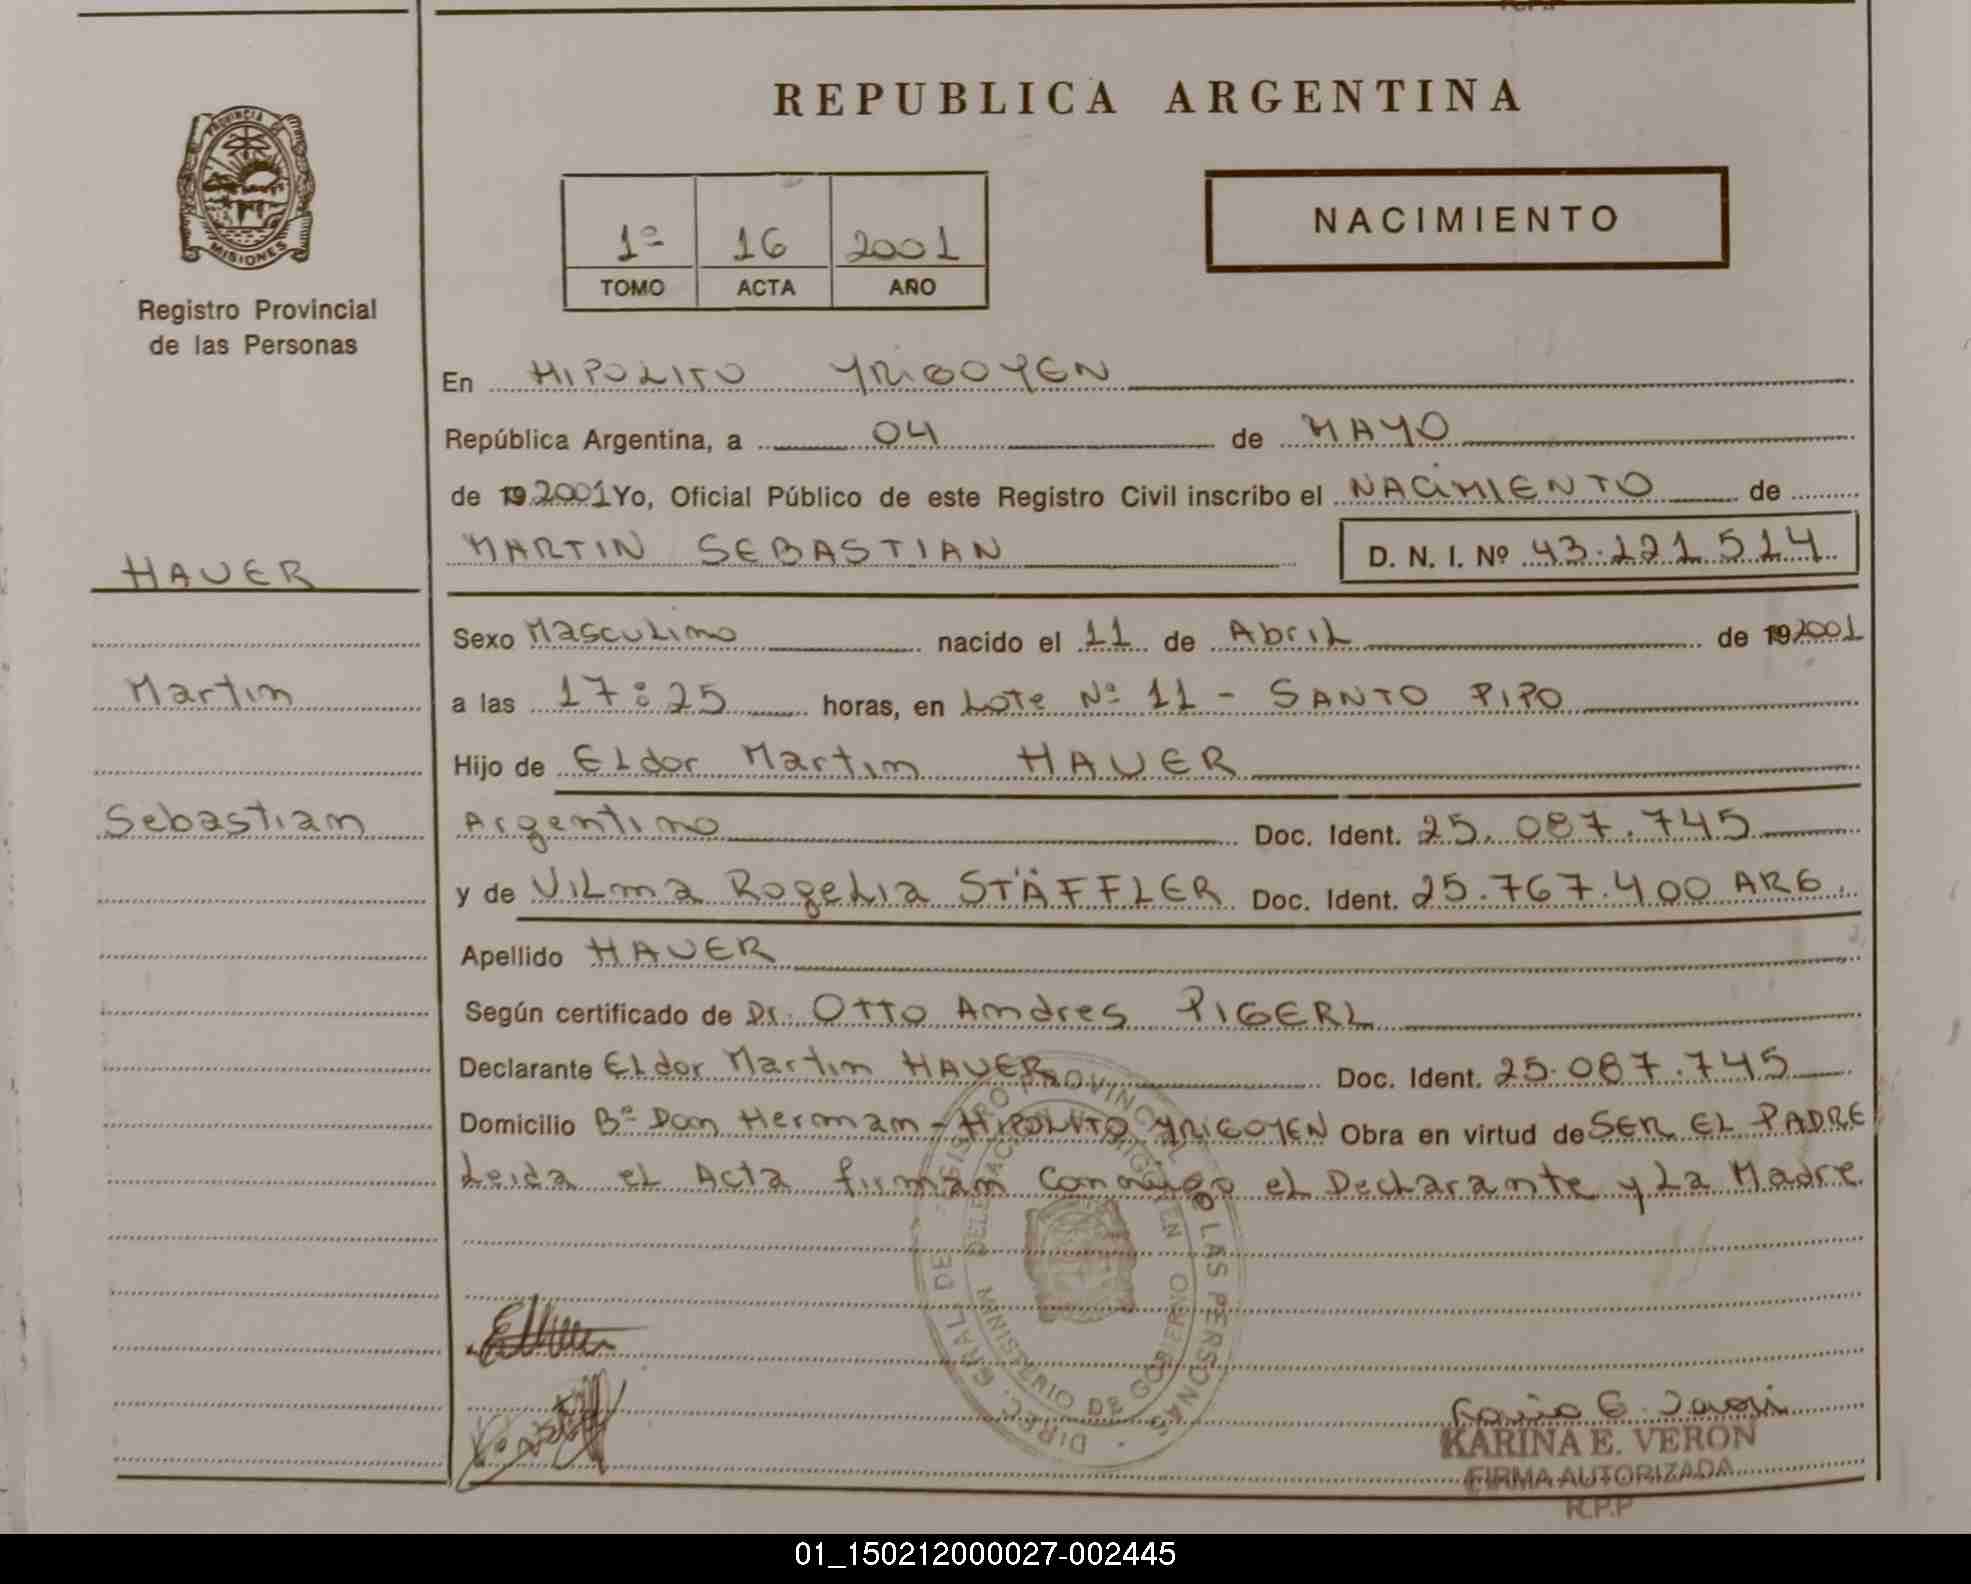 REPUBLICA ARGENTINA
PROVINCIA DE
MISIONES
Registro Provincial
de las Personas
1º 16 2001
TOMO ACTA AÑO
NACIMIENTO
En HIPOLITO YRIGOYEN
República Argentina, a 04 de MAYO
de 19 2001 Yo, Oficial Público de este Registro Civil inscribo el NACIMIENTO de
HAUER
MARTIN SEBASTIAN D. N. I. Nº 43.221.514
Sexo Masculino nacido el 11 de Abril de 19 2001
Martin
a las 17:25 horas, en Lote Nº 11 - SANTO PIPO
Hijo de Eldor Martin HAUER
Sebastian
Argentino Doc. Ident. 25.087.745
y de Vilma Rogelia STÄFFLER Doc. Ident. 25.767.400 ARG.
Apellido HAUER
Según certificado de Dr. Otto Andres PIGERL
Declarante Eldor Martin HAUER Doc. Ident. 25.087.745
Domicilio Bº Don Herman - HIPOLITO YRIGOYEN Obra en virtud de SER EL PADRE
Leida el Acta firman Conmigo el Declarante y La Madre
DIREC. GRAL DE REGISTRO PROVINCIAL DE LAS PERSONAS
MINISTERIO DE GOBIERNO
KARINA E. VERON
FIRMA AUTORIZADA
R.P.P
01_150212000027-002445